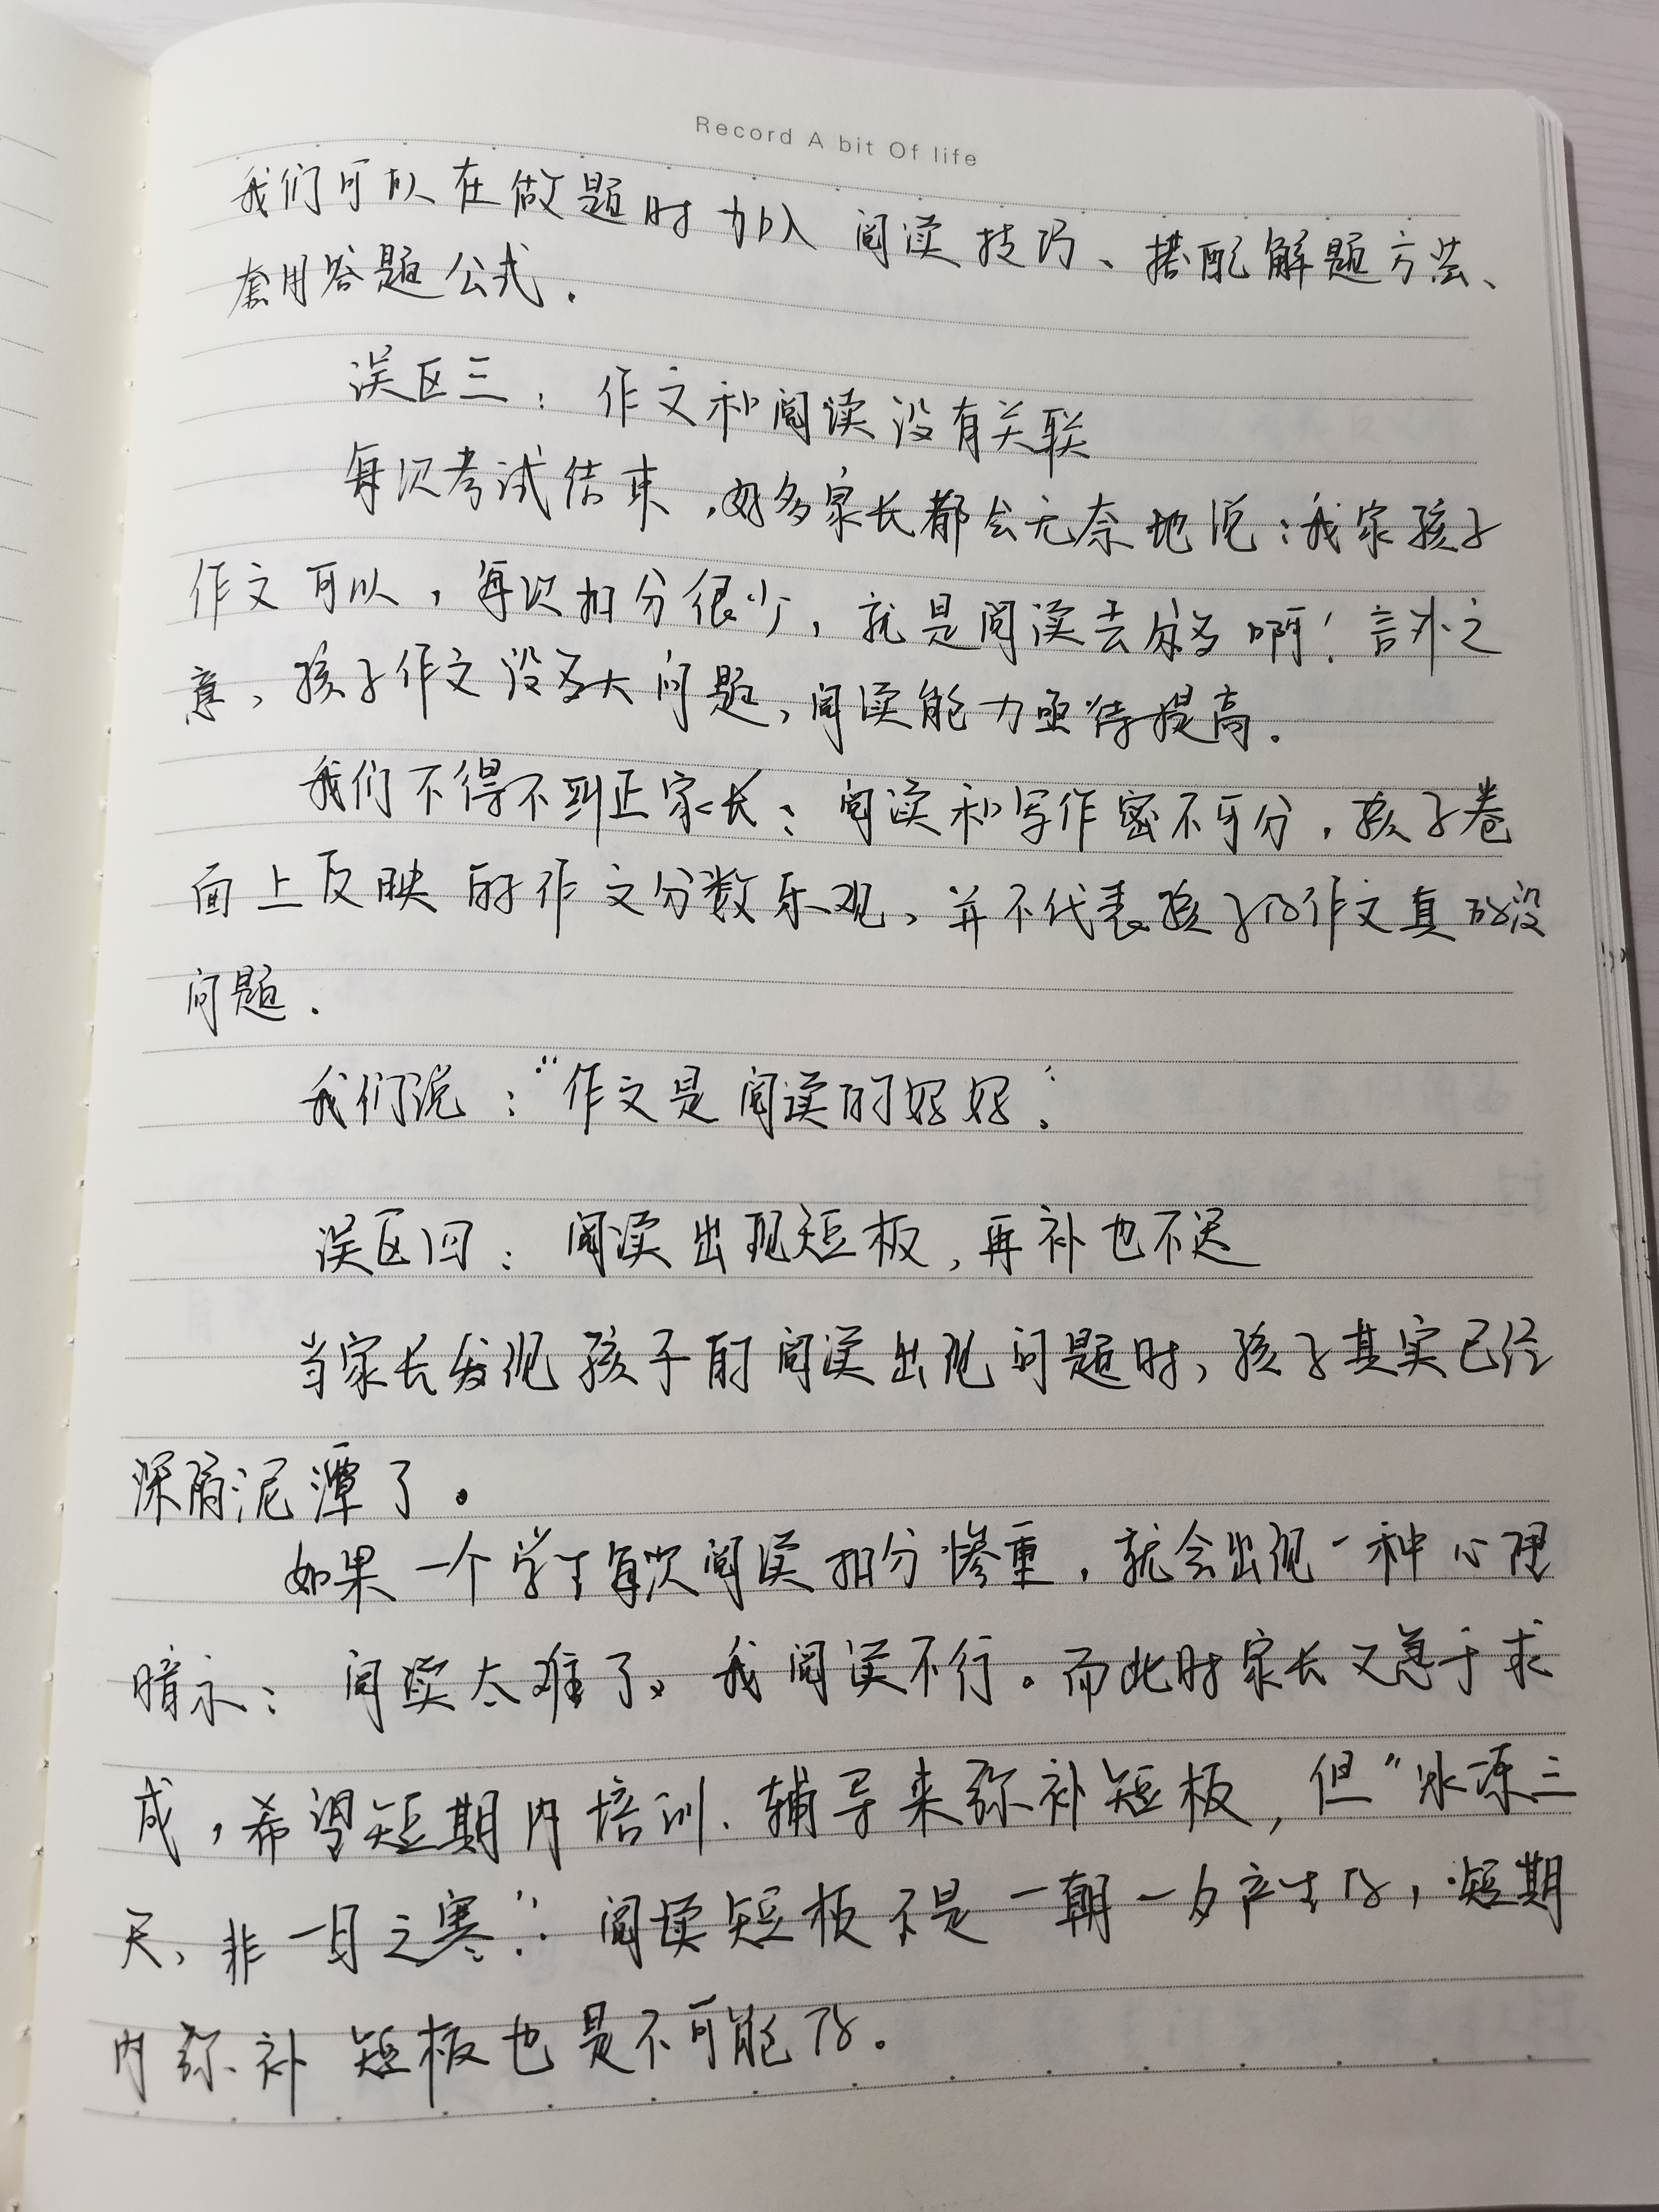 Record A bit Of life
我们可以在做题时加入阅读技巧、搭配解题方法、
套用答题公式.
误区三：作文和阅读没有关联
每次考试结束,好多家长都会无奈地说：我家孩子
作文可以，每次扣分很少，就是阅读去分多啊！言外之
意，孩子作文没多大问题，阅读能力亟待提高.
我们不得不纠正家长：阅读和写作密不可分，孩子卷
面上反映的作文分数乐观，并不代表孩子的作文真的没
问题.
我们说：“作文是阅读的好好”.
误区四：阅读出现短板,再补也不迟
当家长发现孩子的阅读出现问题时，孩子其实已经
深陷泥潭了。
如果一个学生每次阅读扣分惨重，就会出现一种心理
暗示：阅读太难了，我阅读不行。而此时家长又急于求
成，希望短期内培训、辅导来弥补短板，但“冰冻三
尺，非一日之寒”.阅读短板不是一朝一夕产生的，短期
内弥补短板也是不可能的。